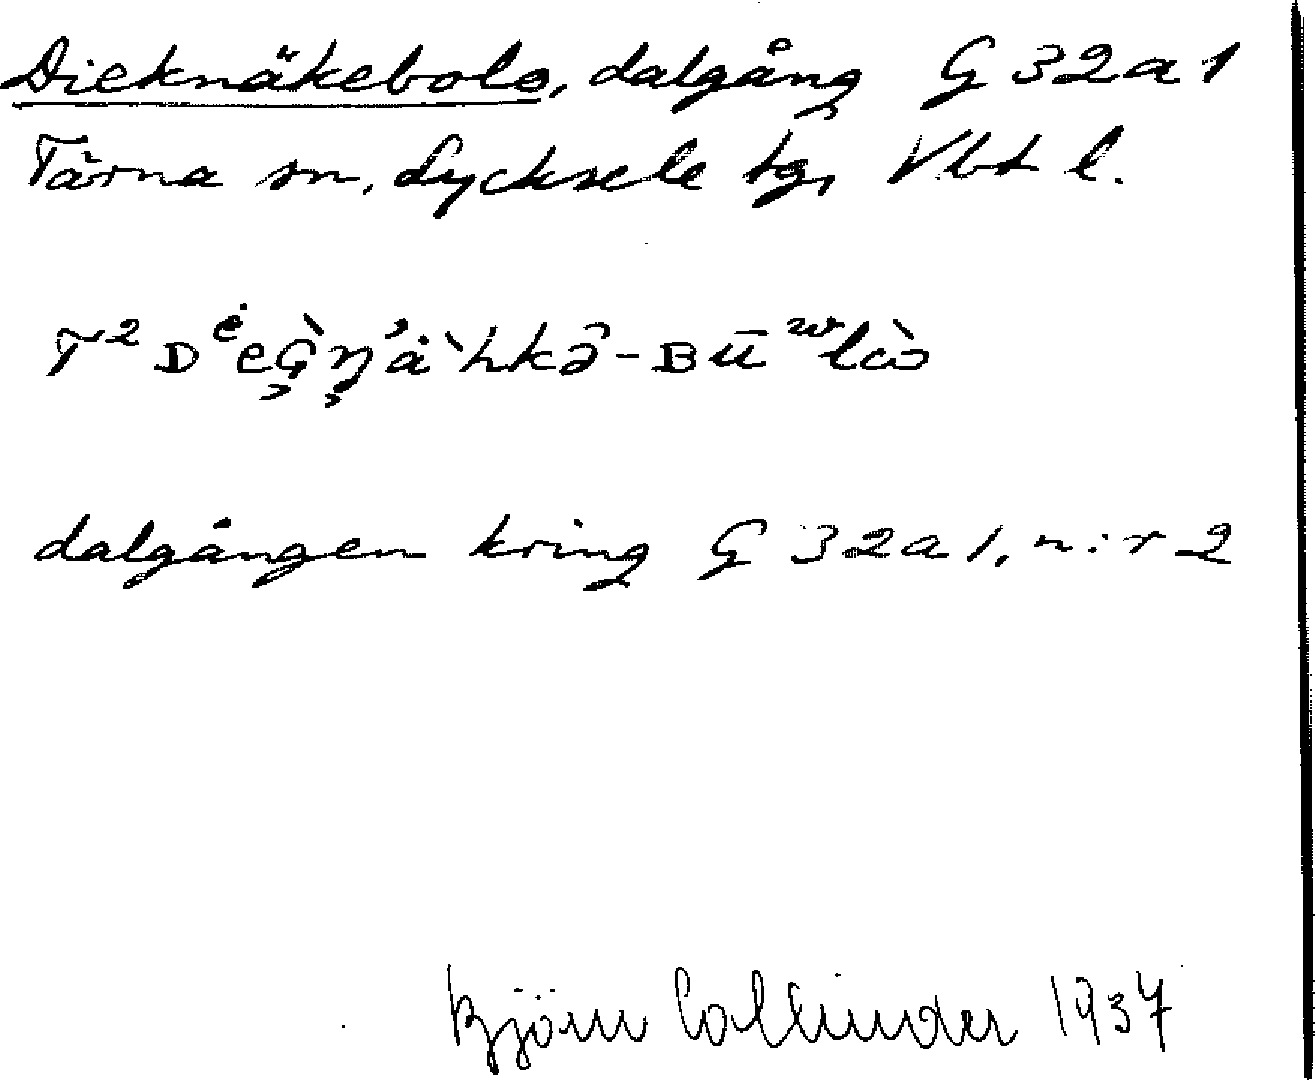 Dieknäkebolo, dalgång G 32a1
Tärna sn, Lycksele tg, Vbt l.
T² D
dalgången kring G 32a1, n:r 2
Björn Collinder 1937